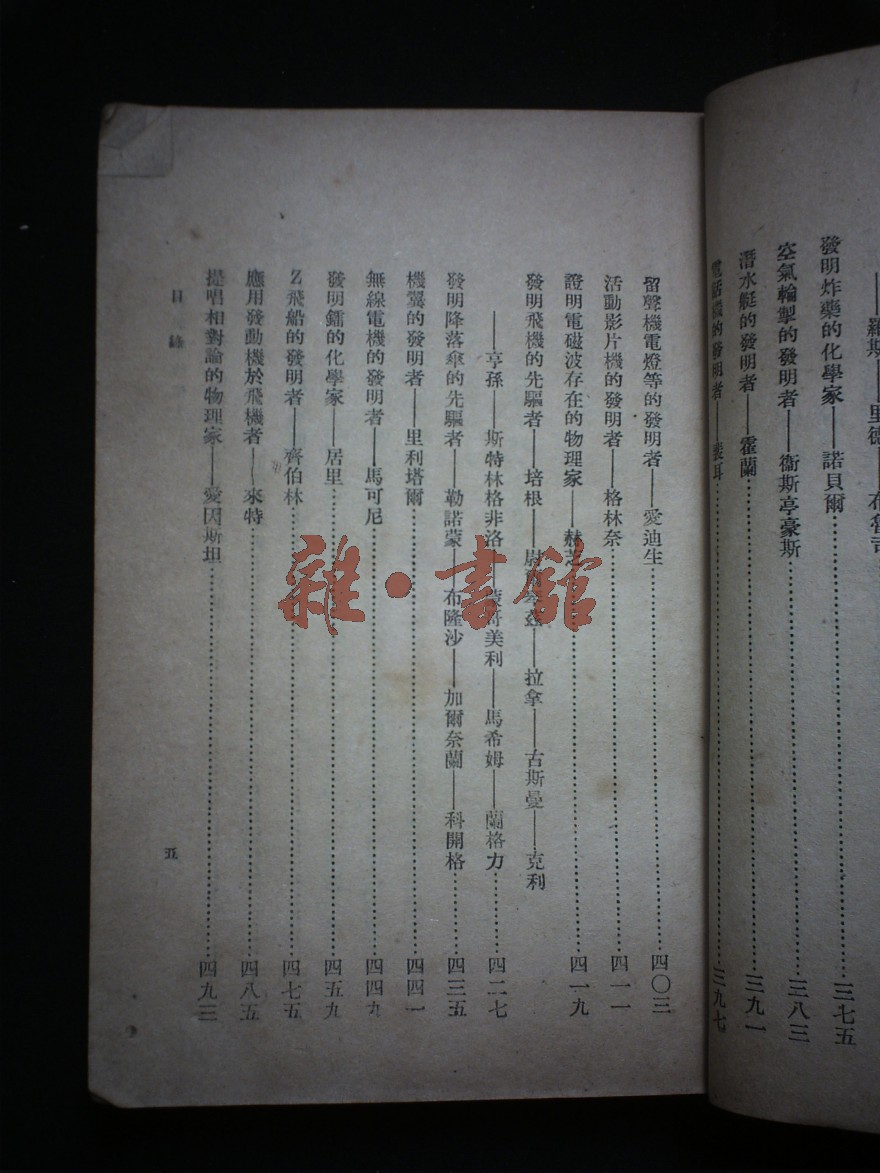 ——羅斯——里德——布魯司
發明炸藥的化學家——諾貝爾……三七五
空氣輪掣的發明者——衞斯亭豪斯……三八三
潛水艇的發明者——霍蘭……三九一
電話機的發明者——裴耳……三九七
留聲機電燈等的發明者——愛迪生……四〇三
活動影片機的發明者——格林奈……四一一
證明電磁波存在的物理家——赫芝……四一九
發明飛機的先驅者——培根——尉——拉拿——古斯曼——克利
——亨孫——斯特林格非洛——蒙哥美利——馬希姆——蘭格力……四二七
發明降落傘的先驅者——勒諾蒙——布隆沙——加爾奈蘭——科開格……四三五
機翼的發明者——里利塔爾……四四一
無線電機的發明者——馬可尼……四四九
發明鐳的化學家——居里……四五九
Z飛船的發明者——齊伯林……四七五
應用發動機於飛機者——來特……四八五
提唱相對論的物理家——愛因斯坦……四九三
目錄
五
雜·書館